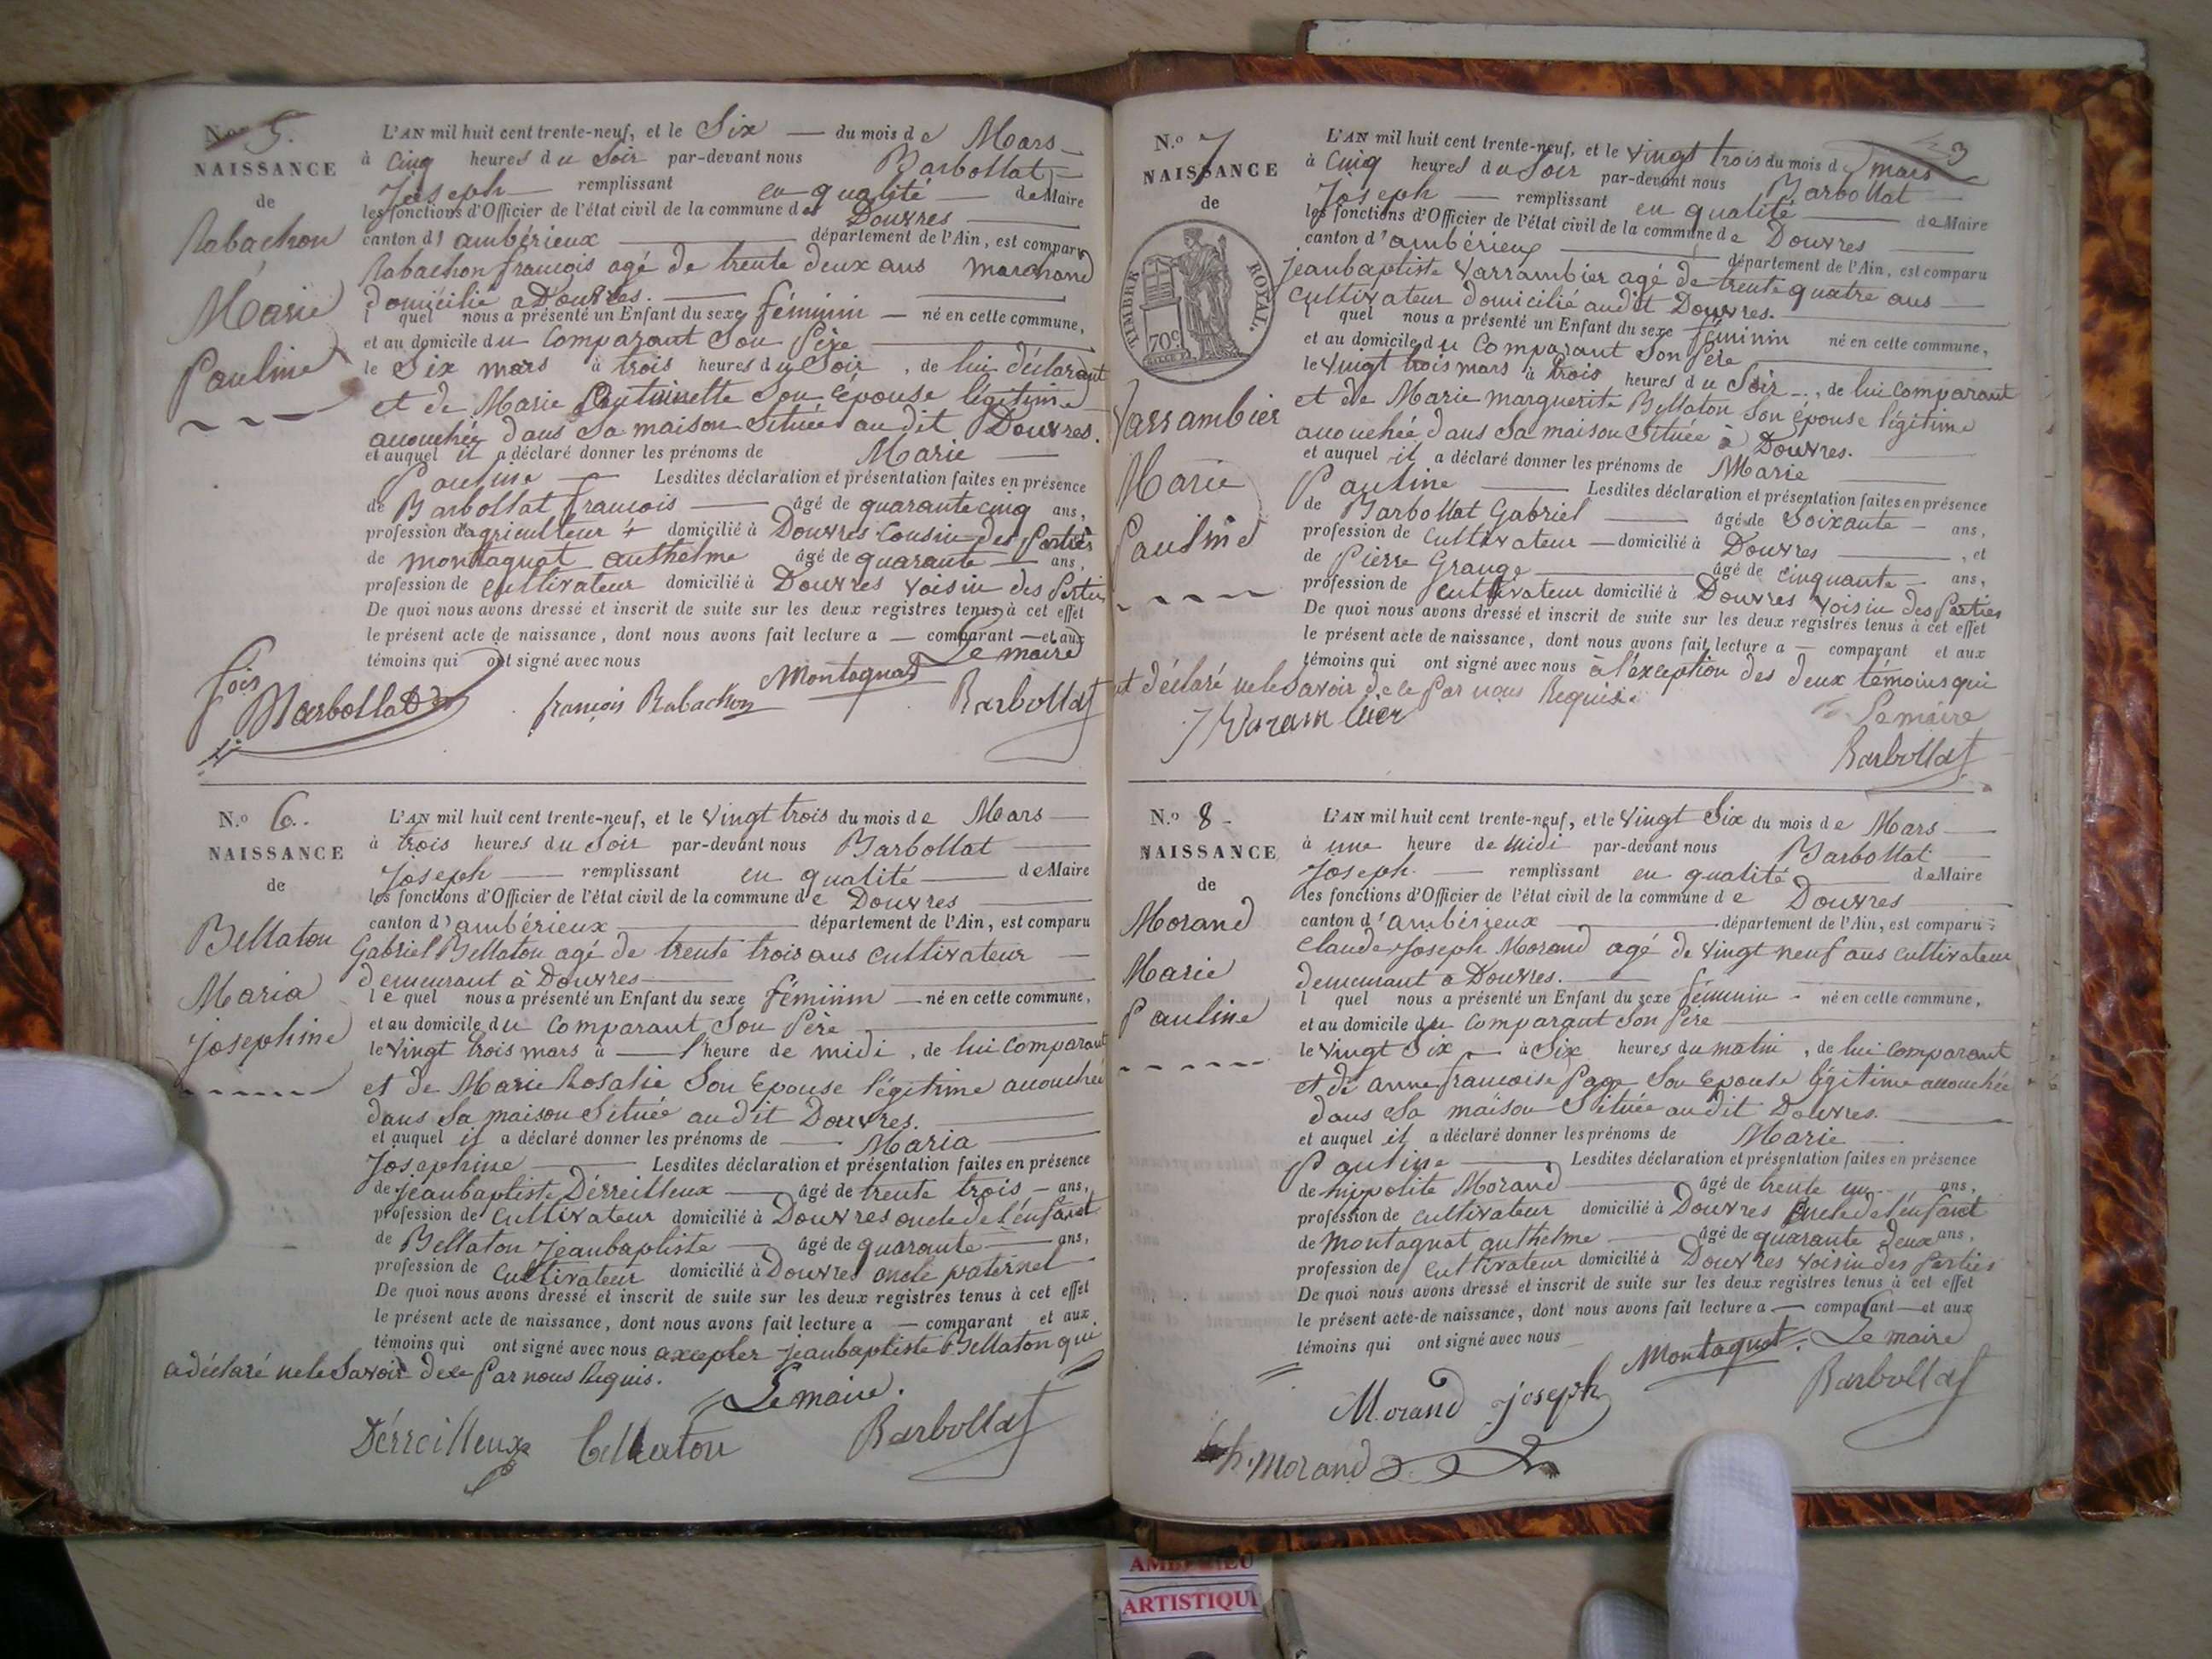 N.o 5.
NAISSANCE
de
Rabachon
Marie
Pauline
L'AN mil huit cent trente-neuf, et le Six — du mois de Mars
à Cinq heures du Soir par-devant nous Barbollat
Joseph — remplissant en qualité — de Maire
les fonctions d'Officier de l'état civil de la commune de Douvres
canton d'ambérieux — département de l'Ain, est comparu
Rabachon françois agé de trente deux ans marchand
domicilié a Douvres. — féminin —
l quel nous a présenté un Enfant du sexe né en cette commune,
et au domicile du Comparant Son Père
le Six mars à trois heures du Soir, de lui déclarant
et de Marie Son Épouse légitime
accouchée dans Sa maison Située au dit Douvres.
et auquel il a déclaré donner les prénoms de Marie
Pauline — Lesdites déclaration et présentation faites en présence
de Barbollat françois — âgé de quarante cinq ans,
profession d'agriculteur domicilié à Douvres Cousin des Parties
de montagnat anthelme âgé de quarante — ans,
profession de cultivateur domicilié à Douvres voisin des Parties
De quoi nous avons dressé et inscrit de suite sur les deux registres tenus à cet effet
le présent acte de naissance, dont nous avons fait lecture a — comparant — et aux
témoins qui ont signé avec nous Le maire
fois Barbollat françois Rabachon Montagnat Barbollat
N.o 6.
NAISSANCE
de
Bellaton
Maria
josephine
L'AN mil huit cent trente-neuf, et le Vingt trois du mois de Mars
à trois heures du Soir par-devant nous Barbollat
Joseph — remplissant en qualité — de Maire
les fonctions d'Officier de l'état civil de la commune de Douvres
canton d'ambérieux — département de l'Ain, est comparu
Gabriel Bellaton agé de trente trois ans cultivateur
demeurant à Douvres
le quel nous a présenté un Enfant du sexe féminin — né en cette commune,
et au domicile du Comparant Son Père
le Vingt trois mars à — l'heure de midi, de lui Comparant
et de Marie Rosalie Son Epouse légitime accouchée
dans Sa maison Située au dit Douvres.
et auquel il a déclaré donner les prénoms de — Maria
Josephine — Lesdites déclaration et présentation faites en présence
de jeanbaptiste Dérreilleux — âgé de trente trois — ans,
profession de Cultivateur domicilié à Douvres oncle de l'enfant
de Bellaton jeanbaptiste — âgé de quarante — ans,
profession de Cultivateur domicilié à Douvres oncle paternel
De quoi nous avons dressé et inscrit de suite sur les deux registres tenus à cet effet
le présent acte de naissance, dont nous avons fait lecture a — comparant et aux
témoins qui ont signé avec nous axcepter jeanbaptiste Bellaton qui
a déclaré ne le Savoir de ce Par nous Requis.
Le maire.
Dérreilleux bellaton Barbollat
3
N.o 7
NAISSANCE
de
TIMBRE ROYAL.
70c
Varrambier
Marie
Pauline
L'AN mil huit cent trente-neuf, et le Vingt trois du mois de mars
à Cinq heures du Soir par-devant nous Barbollat
Joseph — remplissant en qualité — de Maire
les fonctions d'Officier de l'état civil de la commune de Douvres
canton d'ambérieux — département de l'Ain, est comparu
jeanbaptiste Varrambier agé de trente quatre ans
Cultivateur domicilié audit Douvres.
quel nous a présenté un Enfant du sexe féminin né en cette commune,
et au domicile du Comparant Son Père
le Vingt trois mars à trois heures du Soir, de lui Comparant
et de Marie marguerite Bellaton Son épouse légitime
accouchée dans Sa maison Située à Douvres.
et auquel il a déclaré donner les prénoms de Marie
Pauline — Lesdites déclaration et présentation faites en présence
de Barbollat Gabriel — âgé de Soixante — ans,
profession de Cultivateur — domicilié à Douvres —, et
de Pierre Grange — âgé de cinquante — ans,
profession de Cultivateur domicilié à Douvres voisin des Parties
De quoi nous avons dressé et inscrit de suite sur les deux registres tenus à cet effet
le présent acte de naissance, dont nous avons fait lecture a — comparant et aux
témoins qui ont signé avec nous à l'éxception des deux témoins qui
ont déclaré ne le Savoir de ce Par nous Requis.
Le maire
Barbollat
N.o 8
NAISSANCE
de
Morand
Marie
Pauline
L'AN mil huit cent trente-neuf, et le Vingt Six du mois de Mars
à une heure de midi par-devant nous Barbollat
Joseph. — remplissant en qualité de Maire
les fonctions d'Officier de l'état civil de la commune de Douvres
canton d'ambérieux — département de l'Ain, est comparu
Claude Joseph Morand agé de Vingt neuf ans cultivateur
demeurant a Douvres.
l quel nous a présenté un Enfant du sexe féminin - né en cette commune,
et au domicile du Comparant Son Père
le Vingt Six — à Six heures du matin, de lui Comparant
et de anne francoise Page Son Epouse légitime accouchée
dans Sa maison Située au dit Douvres.
et auquel il a déclaré donner les prénoms de Marie
Pauline — Lesdites déclaration et présentation faites en présence
de hippolite Morand — âgé de trente un ans,
profession de cultivateur domicilié à Douvres Oncle de l'enfant
de montagnat anthelme — âgé de quarante deux ans,
profession de Cultivateur domicilié à Douvres voisin des Parties
De quoi nous avons dressé et inscrit de suite sur les deux registres tenus à cet effet
le présent acte de naissance, dont nous avons fait lecture a — comparant — et aux
témoins qui ont signé avec nous
Montagnat. Le maire
Morand joseph Barbollat
h. Morand
ARTISTIQU